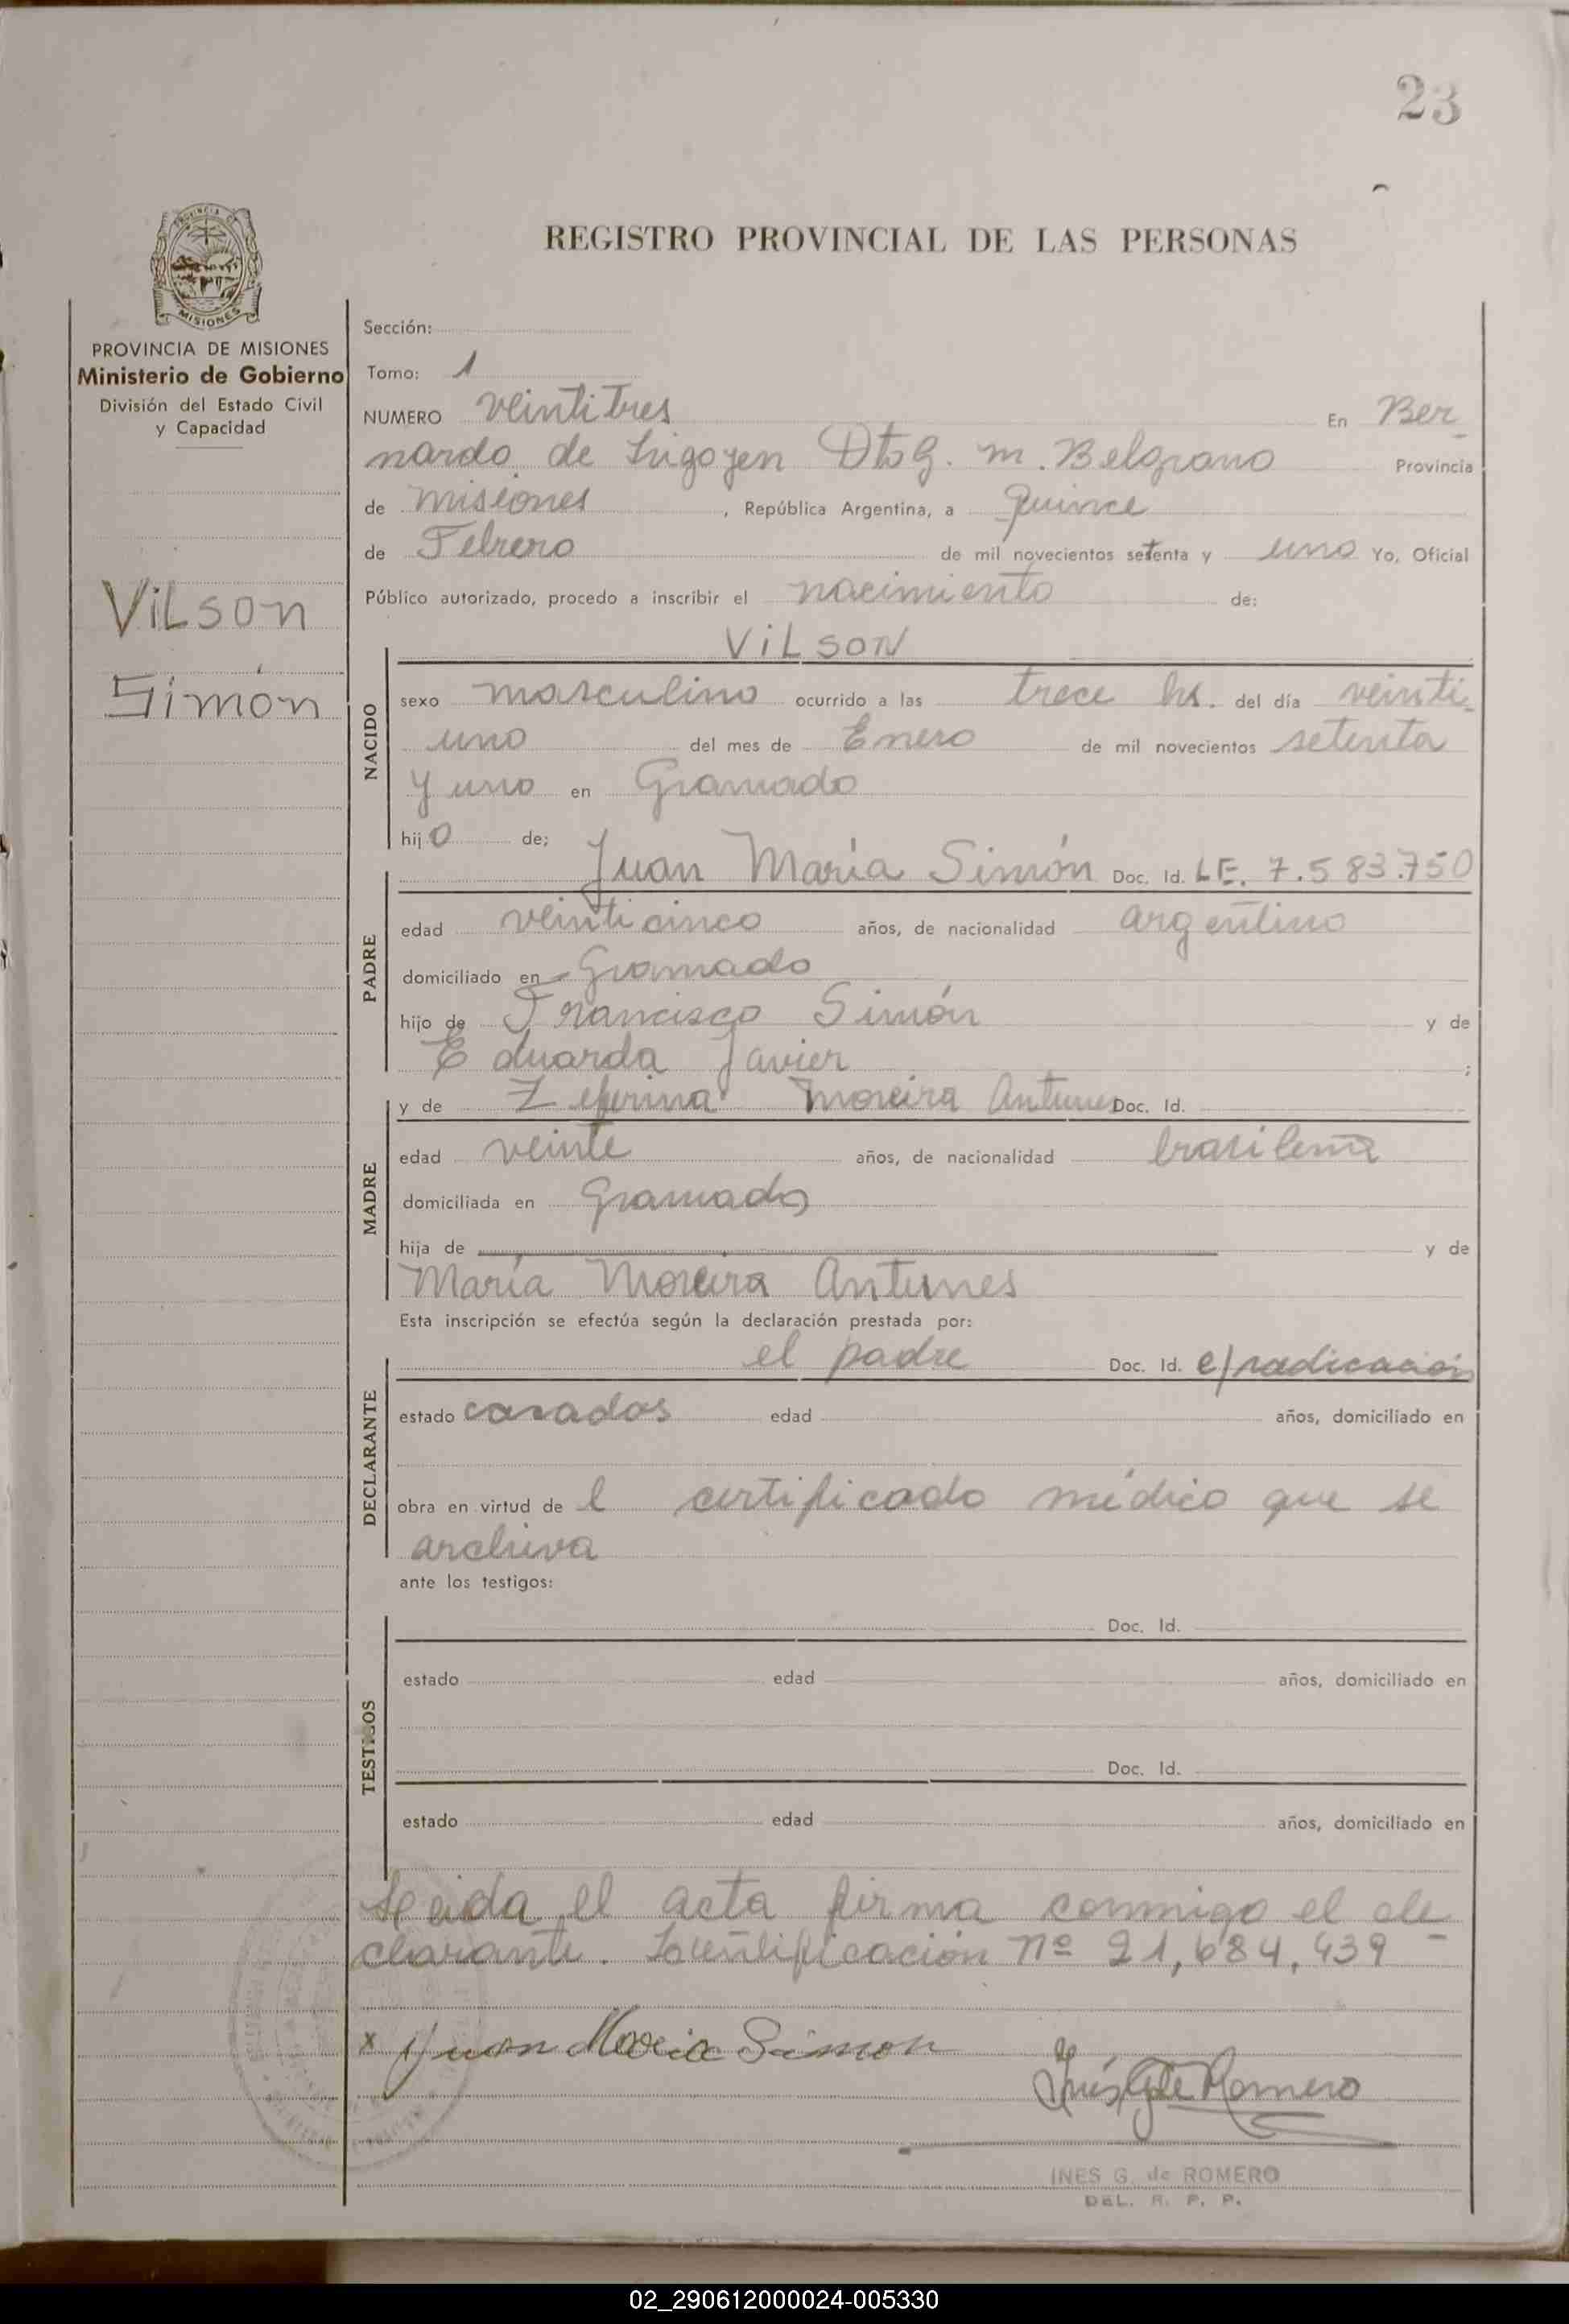 23
REGISTRO PROVINCIAL DE LAS PERSONAS
MISIONES
PROVINCIA DE MISIONES
Ministerio de Gobierno
División del Estado Civil
y Capacidad
Vilson
Simón
Sección:
Tomo: 1
NUMERO veintitres En Ber-
nardo de Irigoyen Dto G. M. Belgrano Provincia
de Misiones, República Argentina, a quince
de Febrero de mil novecientos setenta y uno Yo, Oficial
Público autorizado, procedo a inscribir el nacimiento de:
VILSON
NACIDO
sexo masculino ocurrido a las trece hs. del día veinti-
uno del mes de Enero de mil novecientos setenta
y uno en Gramado
hijo de;
Juan María Simón Doc. Id. LE. 7.583.750
PADRE
edad veinticinco años, de nacionalidad argentino
domiciliado en Gramado
hijo de Francisco Simón y de
Eduarda Javier ;
y de Zeferina Moreira Antunes Doc. Id.
MADRE
edad veinte años, de nacionalidad brasileña
domiciliada en Gramado
hija de y de
María Moreira Antunes
Esta inscripción se efectúa según la declaración prestada por:
el padre Doc. Id. c/radicación
DECLARANTE
estado casados edad años, domiciliado en
obra en virtud de l certificado médico que se
archiva
ante los testigos:
Doc. Id.
TESTIGOS
estado edad años, domiciliado en
Doc. Id.
estado edad años, domiciliado en
Leida el acta firma conmigo el de-
clarante. Identificación nº 21,684,439
x Juan Maria Simon
Inés G de Romero
INES G. de ROMERO
DEL. R. P. P.
02_290612000024-005330